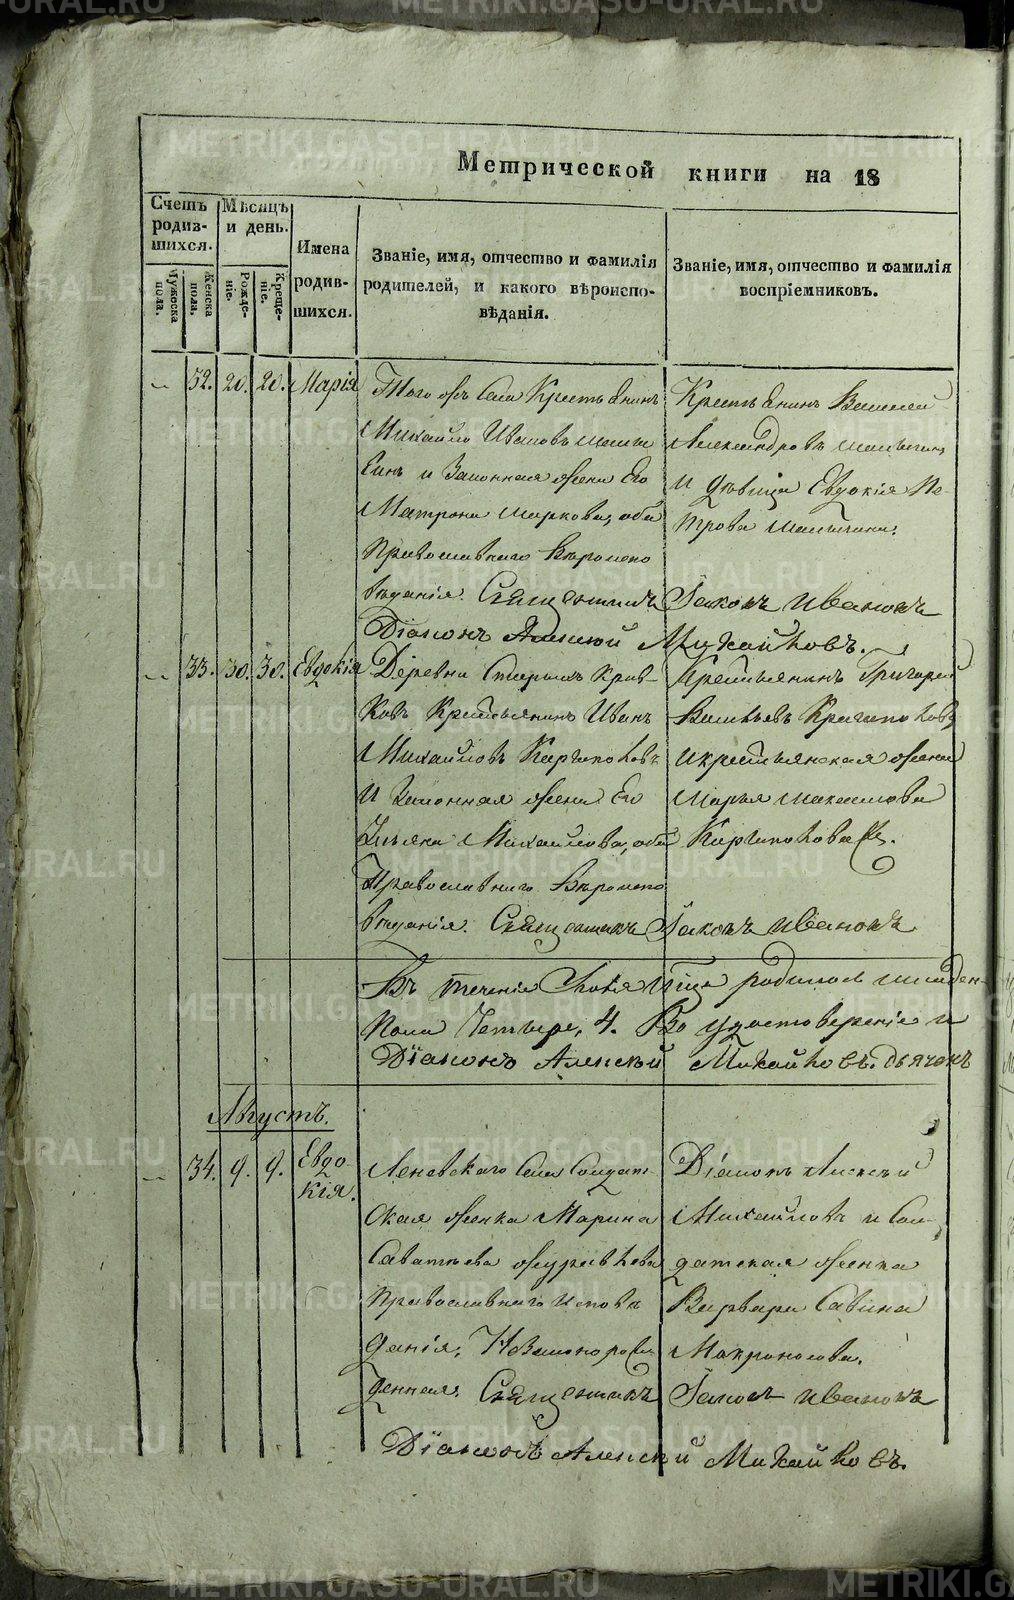 Метрической книги на 18
Счетъ родившихся.
Мужеска пола.
Женска пола.
Мѣсяцъ и день.
Рожденіе.
Крещеніе.
Имена родившихся.
Званіе, имя, отчество и фамилія родителей, и какого вѣроисповѣданія.
Званіе, имя, отчество и фамилія воспріемниковъ.
32. 20. 20. Марія
Того жъ Села Крестьянинъ
Михайло Ивановъ
и Законная жена Его
Матрона Маркова, оба
Православнаго Вѣроиспо
вѣданія.
Крестьянинъ Василей
Александровъ
и дѣвица Евдокія Пе-
трова
Священникъ Іаковъ Ивановъ
Діаконъ Алексій Михайловъ.
33. 30. 30. Евдокія
Деревни
Крестьянинъ Иванъ
Михайловъ
и Законная жена Его
Ульяна Михайлова, оба
Православнаго Вѣроиспо
вѣданія.
Крестьянинъ Григорей
Васильевъ
и крестьянская жена
Марья Максимова
Священникъ Іаковъ Ивановъ
Въ теченіе Іюля м-ца родилось младен-
Пола Четыре, 4. Во удостовереніе и
Діаконъ Алексѣй Михайловъ. дьячекъ
Августъ.
34. 9. 9. Евдо
кія.
Леневскаго Села Солдат-
ская женка Марина
Саватѣева
Православнаго Исповѣ
данія, Незаконорож
денная.
Діаконъ Алексѣй
Михайловъ и Сол-
датская женка
Варвара Савина
Мокроносова.
Священникъ Іаковъ Ивановъ
Діаконъ Алексій Михайловъ.
METRIKI.GASO-URAL.RU